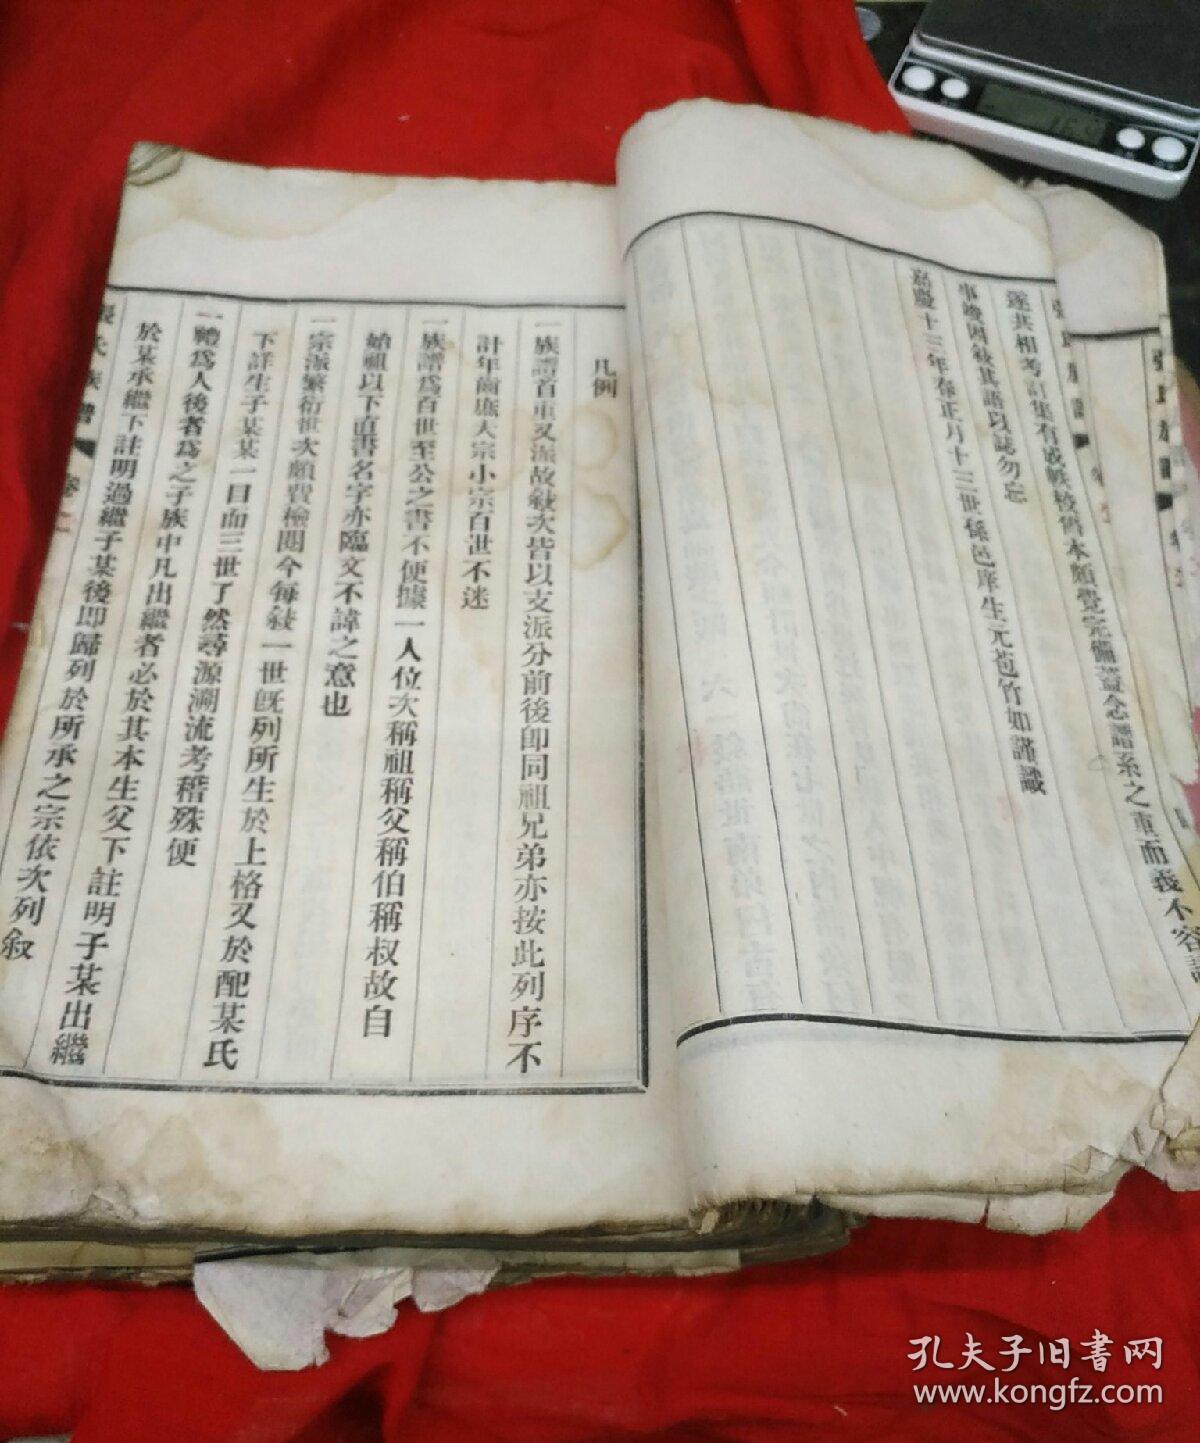 遂共相考訂集有成帙校舊本頗覺完備蓋念譜系之重而義不容
事竣因敘其語以誌勿忘
嘉慶十三年春正月十三世孫邑庠生元苞竹如謹識
凡例
一族譜首重支派故敘次皆以支派分前後即同祖兄弟亦按此列序不
計年齒庶大宗小宗百世不迷
一族譜爲百世至公之書不便據一人位次稱祖稱父稱伯稱叔故自
始祖以下直書名字亦臨文不諱之意也
一宗派繁衍世次頗費檢閱今每敘一世旣列所生於上格又於配某氏
下詳生子某某一目而三世了然尋源溯流考稽殊便
一禮爲人後者爲之子族中凡出繼者必於其本生父下註明子某出繼
於某承繼下註明過繼子某後即歸列於所承之宗依次列叙
張氏族譜 卷一
孔夫子旧書网
www.kongfz.com